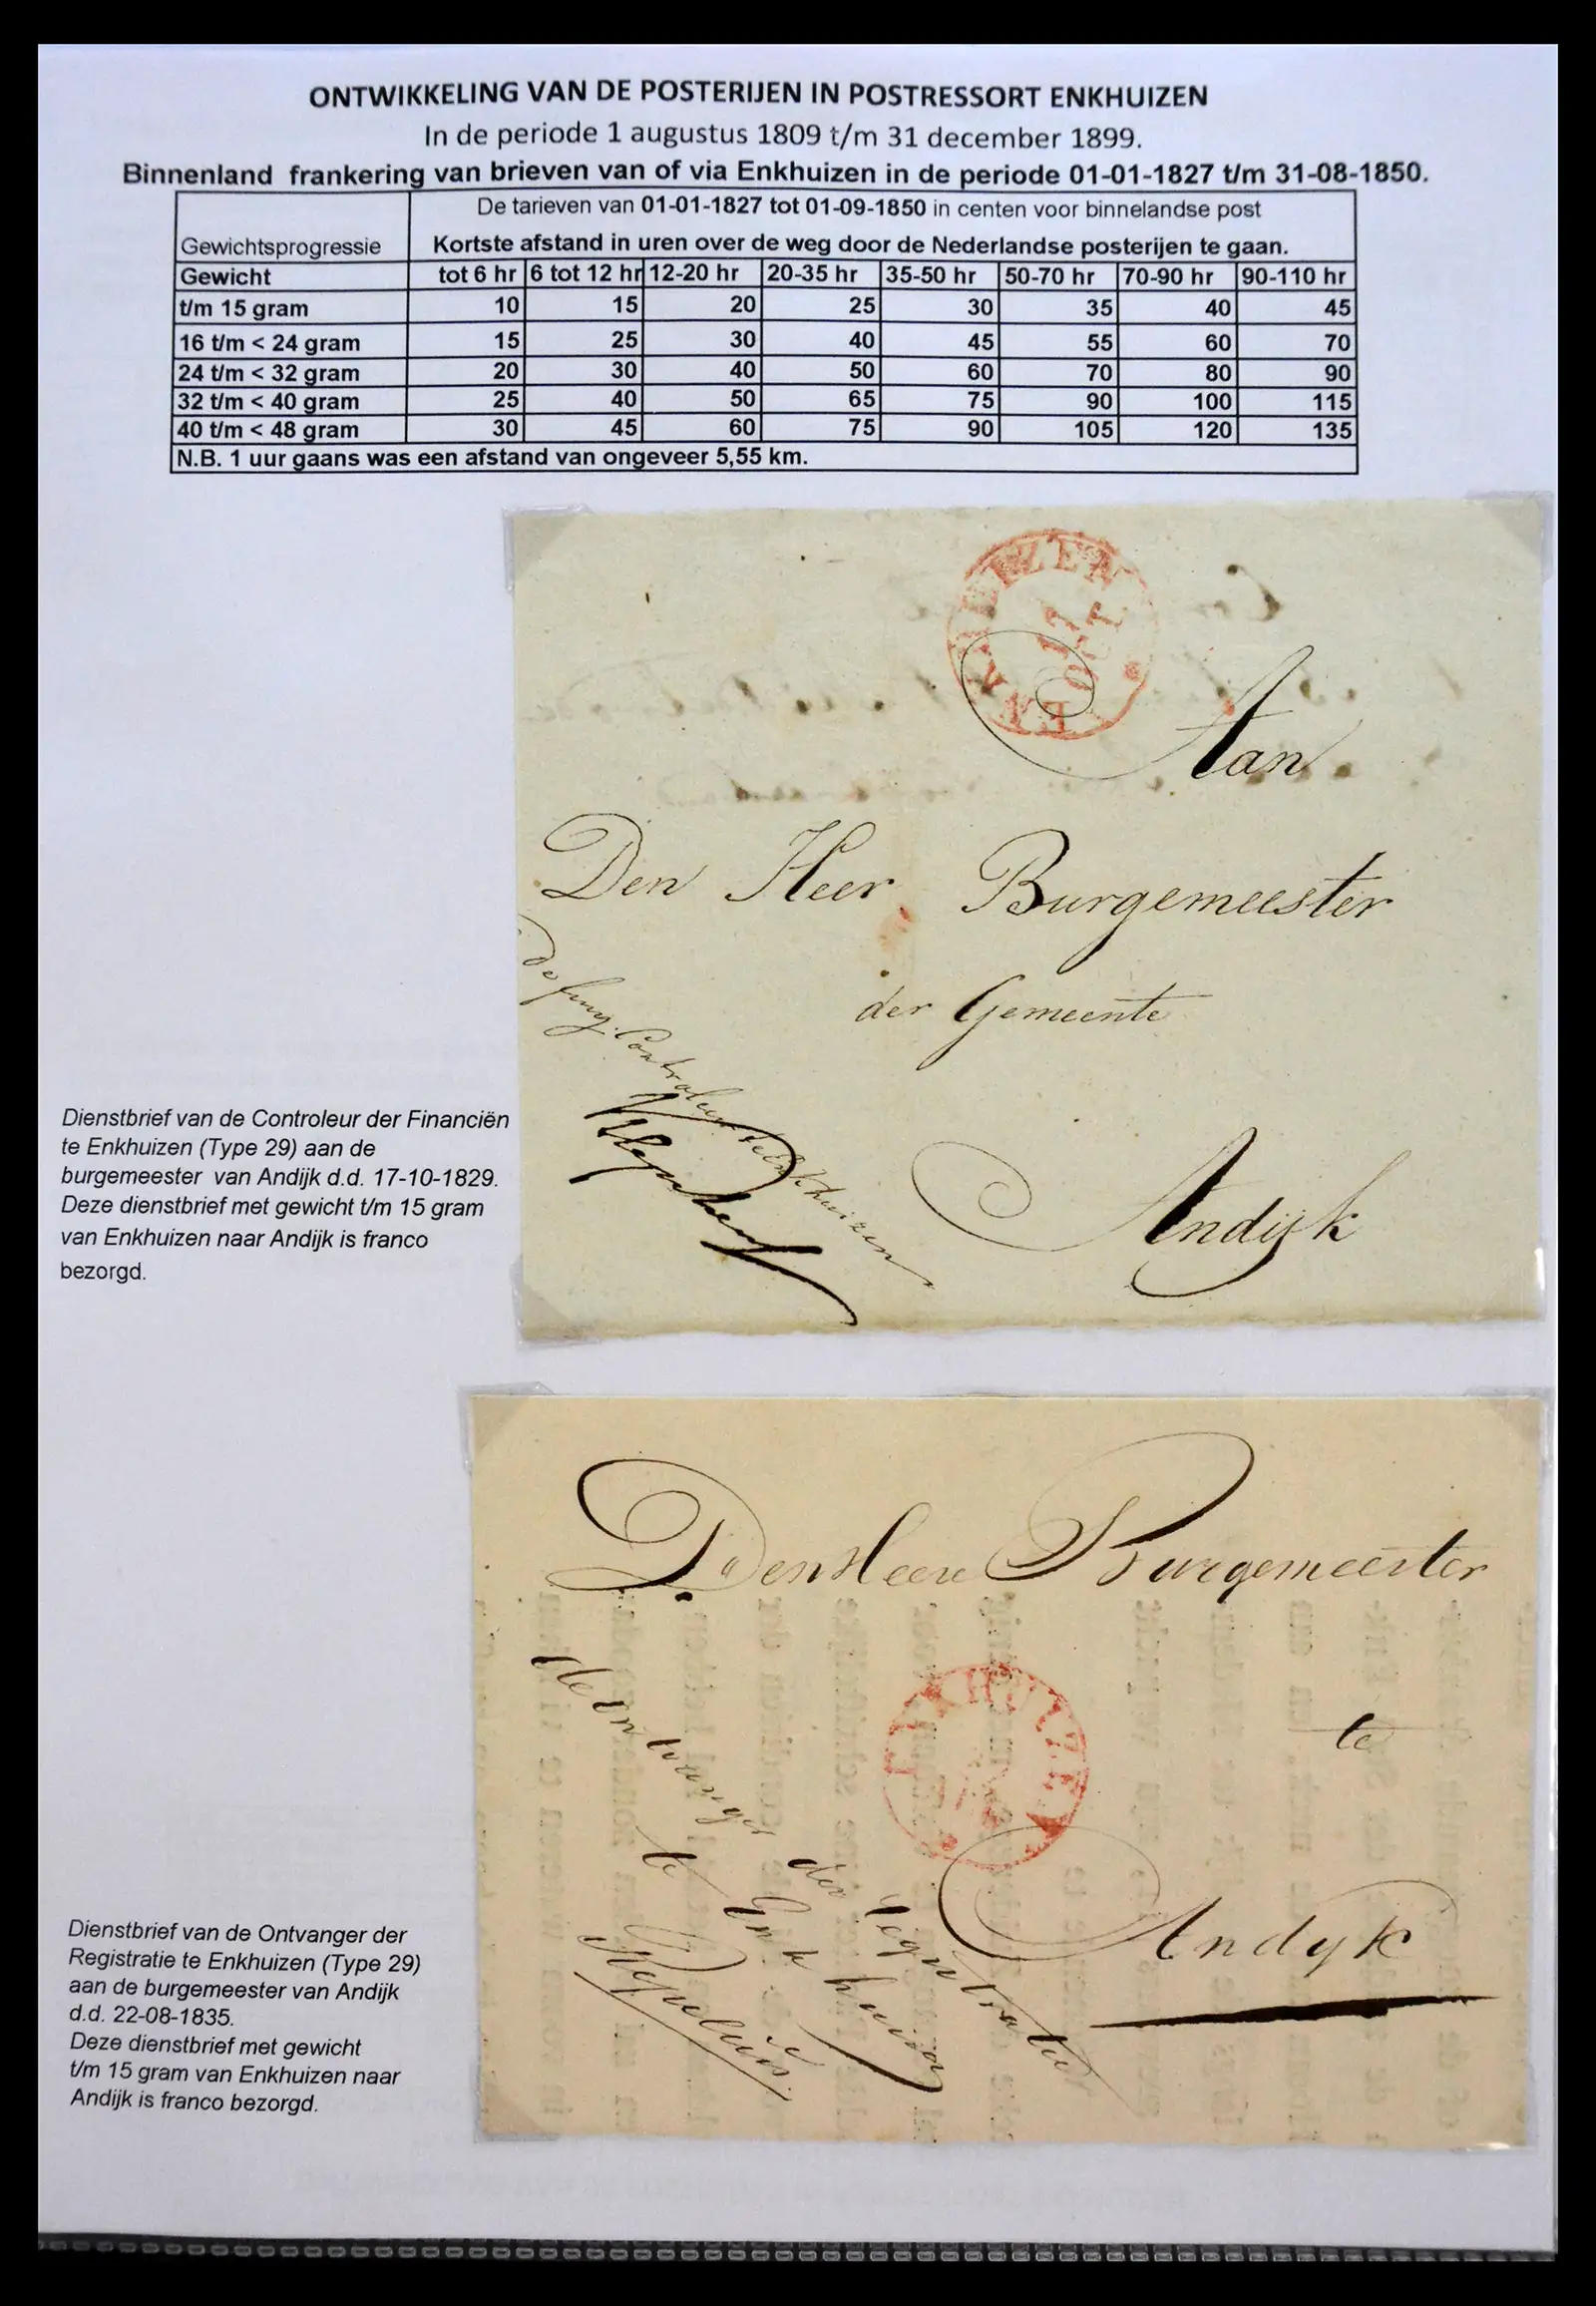 ONTWIKKELING VAN DE POSTERIJEN IN POSTRESSORT ENKHUIZEN
In de periode 1 augustus 1809 t/m 31 december 1899.
Binnenland frankering van brieven van of via Enkhuizen in de periode 01-01-1827 t/m 31-08-1850.
De tarieven van 01-01-1827 tot 01-09-1850 in centen voor binnelandse post
Gewichtsprogressie Kortste afstand in uren over de weg door de Nederlandse posterijen te gaan.
Gewicht tot 6 hr 6 tot 12 hr 12-20 hr 20-35 hr 35-50 hr 50-70 hr 70-90 hr 90-110 hr
t/m 15 gram 10 15 20 25 30 35 40 45
16 t/m < 24 gram 15 25 30 40 45 55 60 70
24 t/m < 32 gram 20 30 40 50 60 70 80 90
32 t/m < 40 gram 25 40 50 65 75 90 100 115
40 t/m < 48 gram 30 45 60 75 90 105 120 135
N.B. 1 uur gaans was een afstand van ongeveer 5,55 km.
ENKHUIZEN
17
OCT
Aan
Den Heer Burgemeester
der Gemeente
Andijk
de fung. Controleur te Enkhuizen
Dienstbrief van de Controleur der Financiën
te Enkhuizen (Type 29) aan de
burgemeester van Andijk d.d. 17-10-1829.
Deze dienstbrief met gewicht t/m 15 gram
van Enkhuizen naar Andijk is franco
bezorgd.
Den Heere Burgemeester
te
Andyk
ENKHUIZEN
de ontvanger der registratie
te Enkhuizen
Dienstbrief van de Ontvanger der
Registratie te Enkhuizen (Type 29)
aan de burgemeester van Andijk
d.d. 22-08-1835.
Deze dienstbrief met gewicht
t/m 15 gram van Enkhuizen naar
Andijk is franco bezorgd.